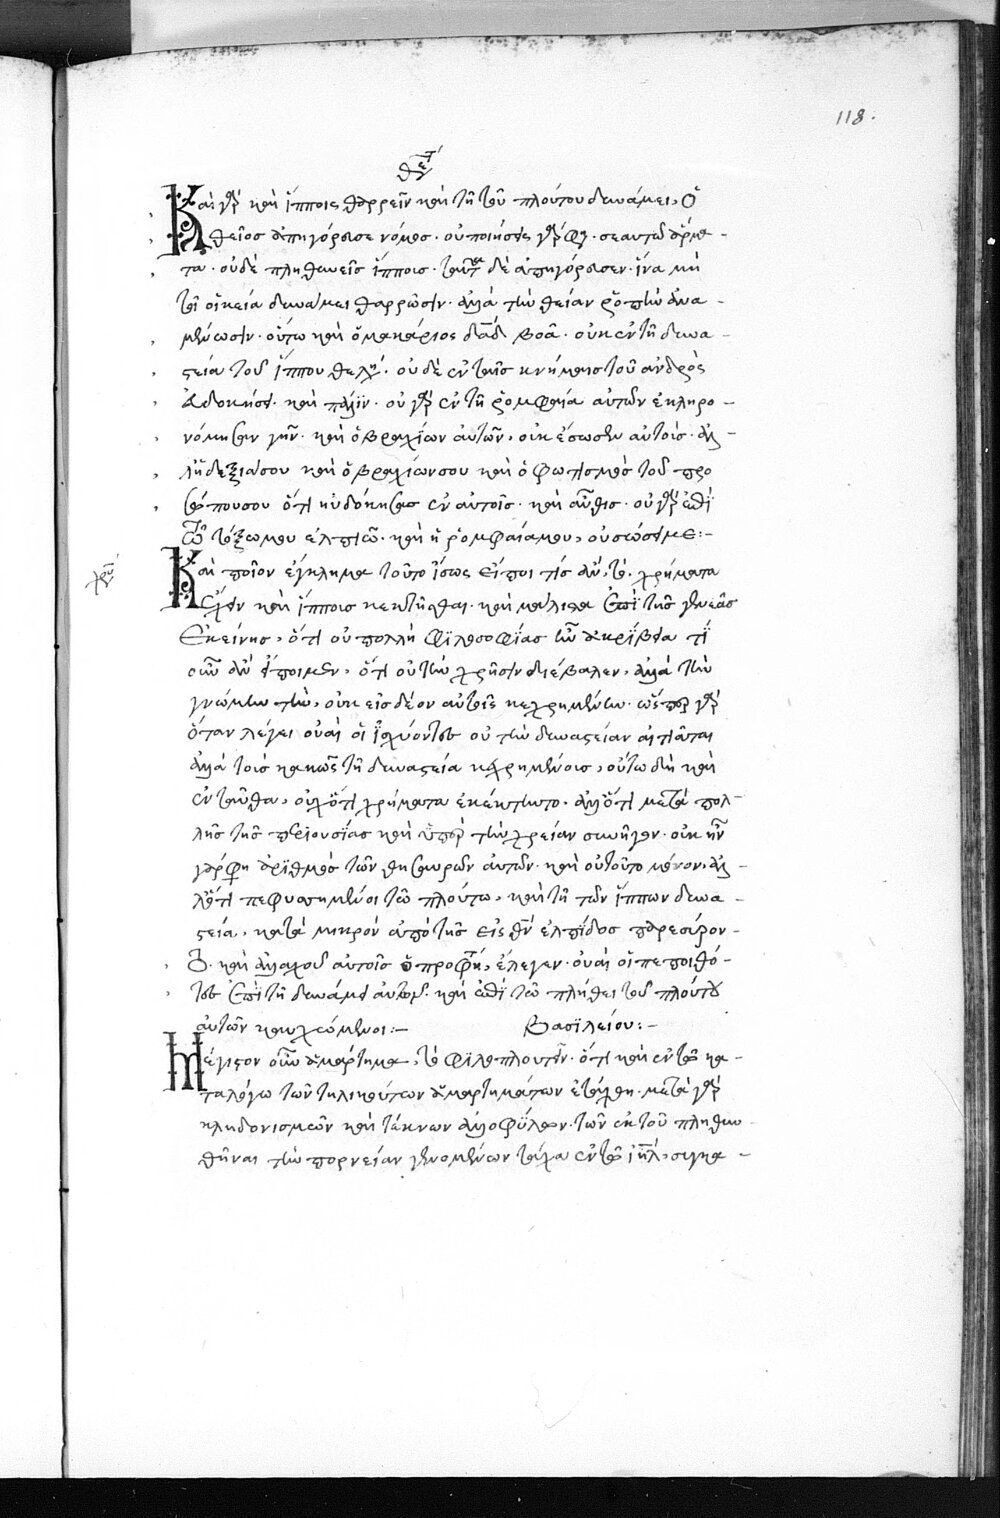 118.
θε
Και γὰρ καὶ ἵπποις θαρρεῖν καὶ τῆ τοῦ πλούτου δυνάμει, ὁ
θεῖος ἀπηγόρευσε νόμος· οὐ ποιήσεις γάρ φη· σεαυτῶ ἅρμα -
τα· οὐδὲ πληθυνεῖς ἵππους· ταῦτα δὲ ἀπηγόρευσεν· ἵνα μὴ
τῆ οἰκεία δυνάμει θαρρῶσιν· ἀλλὰ τὴν θείαν ῥοπὴν ἀνα -
μένωσιν· οὕτω καὶ ὁ μακάριος δαδ βοᾶ· οὐκ ἐν τῆ δυνα -
στεία τοῦ ἵππου θελη· οὐδὲ ἐν ταῖς κνήμαις τοῦ ἀνδρὸς
εὐδοκήσει· καὶ πάλιν· οὐ γὰρ ἐν τῆ ῥομφαία αὐτῶν ἐκληρο -
νόμησαν γῆν· καὶ ὁ βραχίων αὐτῶν, οὐκ ἔσωσεν αὐτοὺς· ἀλ -
λ' ἡ δεξιά σου καὶ ὁ βραχίων σου καὶ ὁ φωτισμὸς τοῦ προ
σώπου σου ὅτι ηὐδόκησας ἐν αὐτοῖς· καὶ αὖθις· οὐ γὰρ ἐπὶ
τῶ τόξω μου ἐλπιῶ· καὶ ἡ ῥομφαία μου, οὐ σώσει με:-
χρυ
Και ποῖον ἔγκλημα τοῦτο ἴσως εἴποι τίς ἂν, τὸ χρήματα
ἔχειν καὶ ἵππους κεκτῆσθαι· καὶ μάλιστα ἐπὶ τῆς γενεᾶς
ἐκείνης, ὅτι οὐ πολλὴ φιλοσοφίας ἦν ἀκρίβεια τί
οὖν ἂν εἴποιμεν, ὅτι οὐ τὴν χρῆσιν διέβαλεν, ἀλλὰ τὴν
γνώμην τὴν, οὐκ εἰς δέον αὐτοῖς κεχρημένην· ὥσπερ γὰρ
ὅταν λέγει οὐαὶ οἱ ἰσχύοντες οὐ τὴν δυναστείαν αἰτιᾶται
ἀλλὰ τοὺς κακῶς τῆ δυναστεία κεχρημένους, οὕτω δὴ καὶ
ἐνταῦθα, οὐχ ὅτι χρήματα ἐκέκτηντο· ἀλλ' ὅτι μετὰ πολ -
λῆς τῆς περιουσίας καὶ ὑπὲρ τὴν χρείαν συνῆγον· οὐκ ἦν
γάρ φη ἀριθμὸς τῶν θησαυρῶν αὐτῶν· καὶ οὐ τοῦτο μόνον· ἀλ -
λ' ὅτι πεφυσημένοι τῶ πλούτω, καὶ τῆ τῶν ἵππων δυνα -
στεία, κατὰ μικρὸν ἀπὸ τῆς εἰς θν ἐλπίδος παρεσύρον -
το· καὶ ἀλλαχοῦ αὐτοῖς ὁ προφη, ἔλεγεν· οὐαὶ οἱ πεποιθό -
τες ἐπὶ τῆ δυνάμει αὐτῶν· καὶ ἐπὶ τῶ πλήθει τοῦ πλούτου
αὐτῶν καυχώμενοι:- Βασιλείου:-
Μέγιστον οὖν ἁμάρτημα, τὸ φιλοπλουτεῖν· ὅτι καὶ ἐν τῶ κα -
ταλόγω τῶν τηλικούτων ἁμαρτημάτων ἐτάχθη· μετὰ γὰρ
κληδονισμῶν καὶ τέκνων ἀλλοφύλων· τῶν ἐκ τοῦ πληθυν -
θῆναι τὴν πορνείαν γενομένων τάχα ἐν τῶ ιηλ, σιγησ -